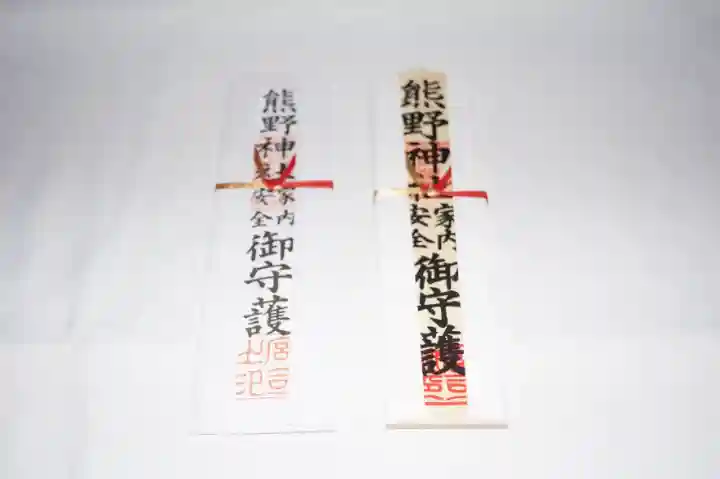 熊野神社
家内
安全
御守護
宮司
之印
熊野神社
家内
安全
御守護